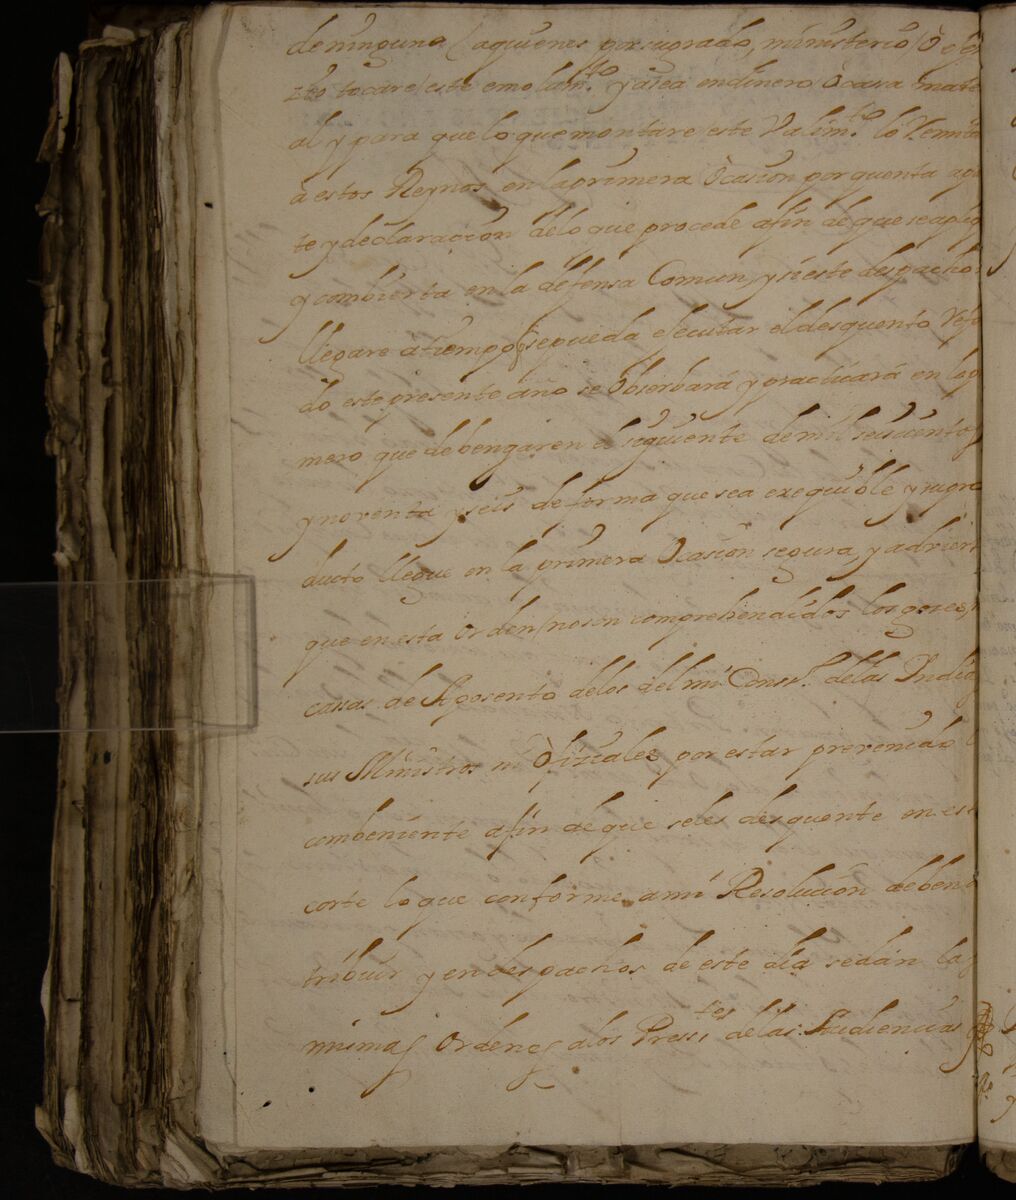 deninguna (aquienes por sugrado, ministerio, ò ofi
zio tocare) este emolam.to yàsea endinero ò casa mate
al y para que lo quemontare este Valim.to lo Remita
a estos Reynos en la primera òcasion por quenta apa
te y declaraçion delo que procede afin de que se apliq
y combierta en la defensa Comun, y si este despacho
llegare atiempo q sepueda executar el desquento Refe
do este presente año se Obserbarà y practicarà en lo p
mero que debengaren el seguiente de mil seiscientos
y noventa y seis de forma que sea exequible y su pro
ducto llegue en la primera Ocasion segura, y adviert
que en esta orden no son comprehendidos los gozes,
casas de Aposento delos del mi Cons.º delas Indias
sus Ministros ni Ofiziales por estar prevenido
combeniente afin de que seles desquente en es
corte lo que conforme ami Resoluçion deben
tribuir y en despachos de este dia se dàn las
mismas Ordenes alos Pressi.tes delas Audiencias